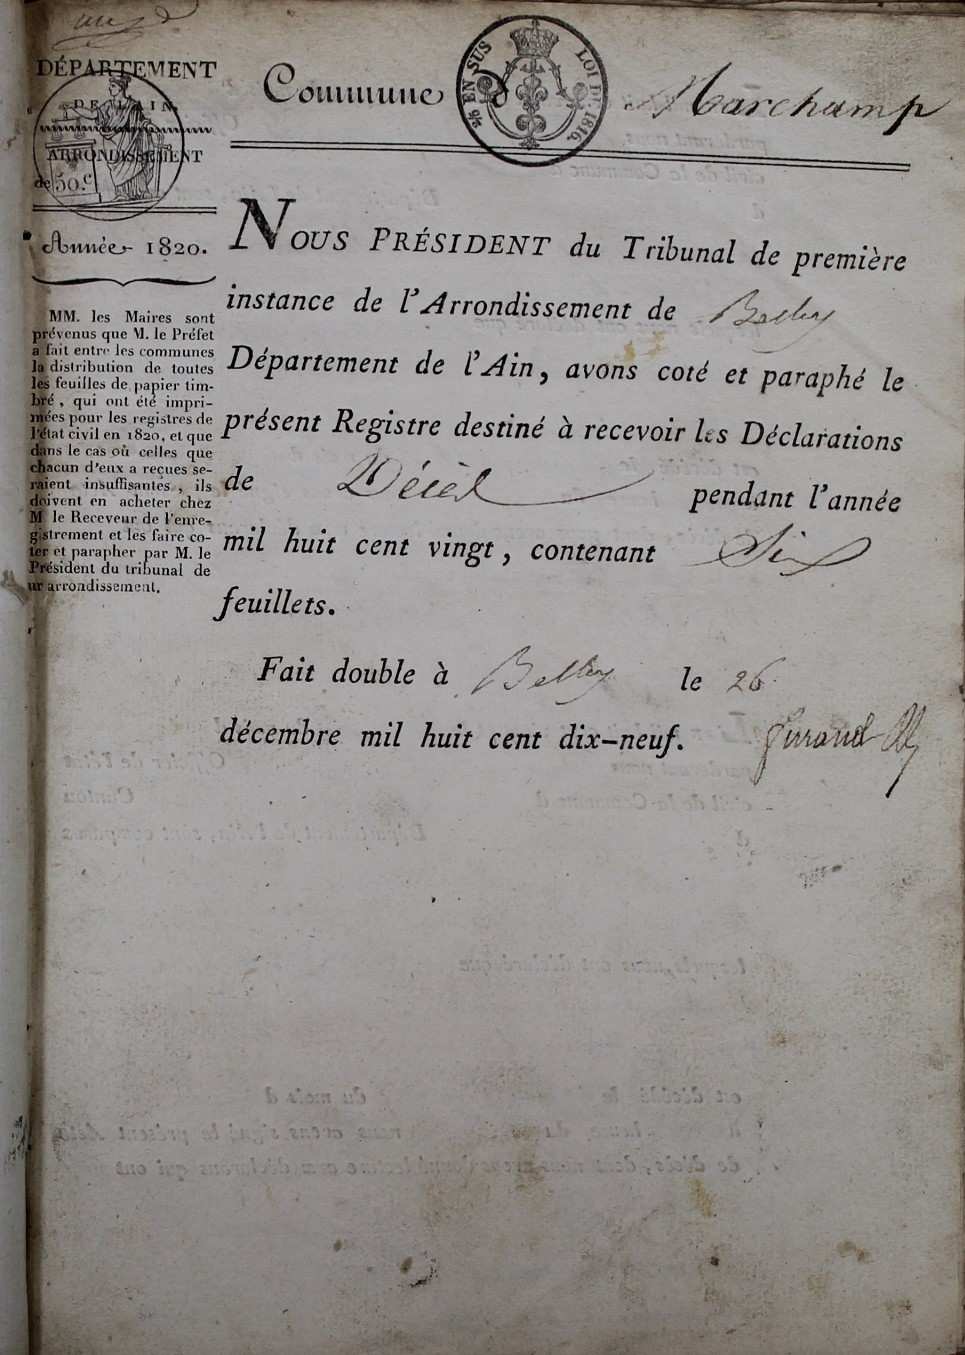 DÉPARTEMENT
DE L'AIN.
ARRONDISSEMENT
de
50.c
Année 1820.
MM. les Maires sont
prévenus que M. le Préfet
a fait entre les communes
la distribution de toutes
les feuilles de papier tim-
bré, qui ont été impri-
mées pour les registres de
l'état civil en 1820, et que
dans le cas où celles que
chacun d'eux a reçues se-
raient insuffisantes, ils
doivent en acheter chez
M. le Receveur de l'enre-
gistrement et les faire co-
ter et parapher par M. le
Président du tribunal de
ur arrondissement.
Commune d Marchamp
EN SUS LOI DE 1816.
NOUS PRÉSIDENT du Tribunal de première
instance de l'Arrondissement de Belley
Département de l'Ain, avons coté et paraphé le
présent Registre destiné à recevoir les Déclarations
de Décès pendant l'année
mil huit cent vingt, contenant Six
feuillets.
Fait double à Belley le 26
décembre mil huit cent dix-neuf.